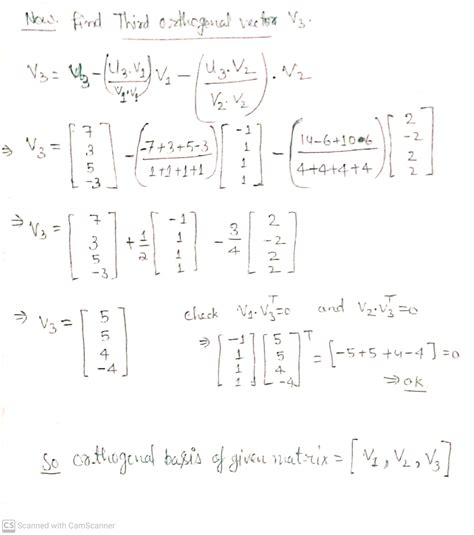 Now. find Third orthogonal vector V3.
V3 = U3 - (U3.V1 / V1.V1) V1 - (U3.V2 / V2.V2) . V2
⇒ V3 = [7 3 5 -3] - (-7+3+5-3 / 1+1+1+1) [-1 1 1 1] - (14-6+10-6 / 4+4+4+4) [2 -2 2 2]
⇒ V3 = [7 3 5 -3] + 1/2 [-1 1 1 1] - 3/4 [2 -2 2 2]
⇒ V3 = [5 5 4 -4] check V1.V3^T=0 and V2.V3^T=0
⇒ [-1 1 1 1] [5 5 4 -4]^T = [-5+5+4-4] = 0
⇒ ok
So orthogonal basis of given matrix = [V1, V2, V3]
CS Scanned with CamScanner